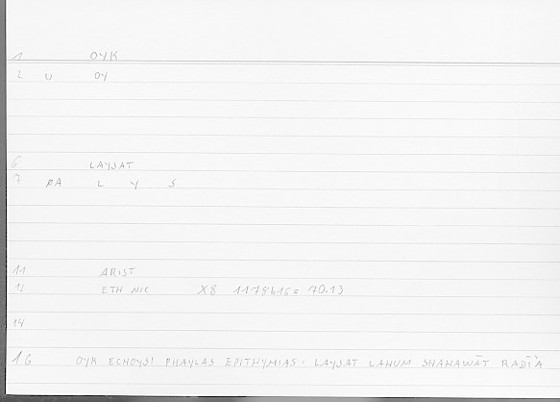 1 OYK
2 U OY
6 LAYSAT
7 RA L Y S
11 ARIST
12 ETH NIC X8 1178b16= 70.13
14
16 OYK ECHOYSI PHAYLAS EPITHYMIAS · LAYSAT LAHUM SHAHAWĀT RADĪ'A